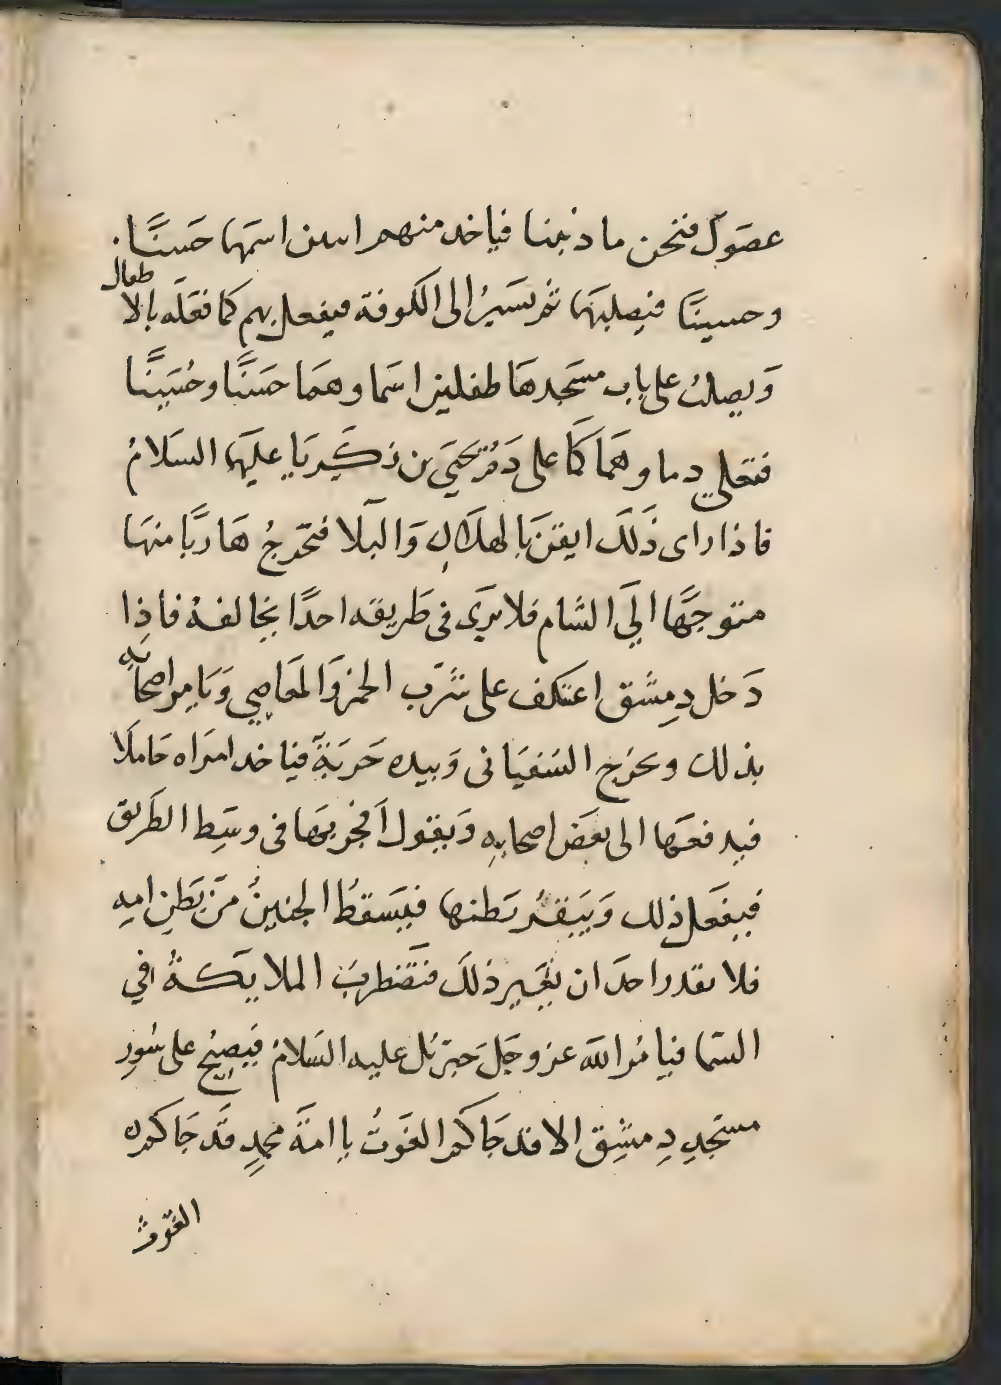 عصَوك فنحن ما ذنبنا فياخد منهم اسين اسمَهما حَسَنًا
وحسينًا فيصلبهَما ثم يسَيرُ الى الكوفة فيفعل بهم كما فعَلَه بالاطفال
وَيصلبُ على باب مسَجدهَا طفلين اسَماوهمَا حسَنًا وحُسَينًا
فتغلى دماوهمَا كمَا على دَمُ يحيَى بن زكَيريَا عليهما السَلامُ
فاذا راى ذَلَك ايقنَ بالهلاك وَالبَلا فتخرجُ هَاربًا منهَا
متوجهًا الَي الشام فلا يرَى فى طَريقه احدًا يخالفهُ فاذِا
دَخل دِمِشَق اعتكف على شرَب الخمر وَالمعَاصِي وَيامر اصحابه
بذلك ويخرَج السَفيَانى وَبيده حَربَةً فياخد امرَاه حَاملًا
فيدفعَها الى بعَض اصحابِهِ وَيقول افجر بهَا فى وسَط الطَريق
فيفعَل ذلك وَيَبقرُ بَطنها فيَسَقطُ الجنينُ منَ بَطِن امهِ
فلا يقدر احدَ ان يغَيرِ ذلَكَ فتَضَطربَ الملايكَةُ في
السَما فيامُر اللَه عز وجَلَ جَبرَئل عليه السَلامُ فيَصِيُح على سُورِ
مسَجدِ دِمشِق الا قد جَاكم الغَوثُ يا امةَ محمدٍ قَد جَاكم
الغَوثُ